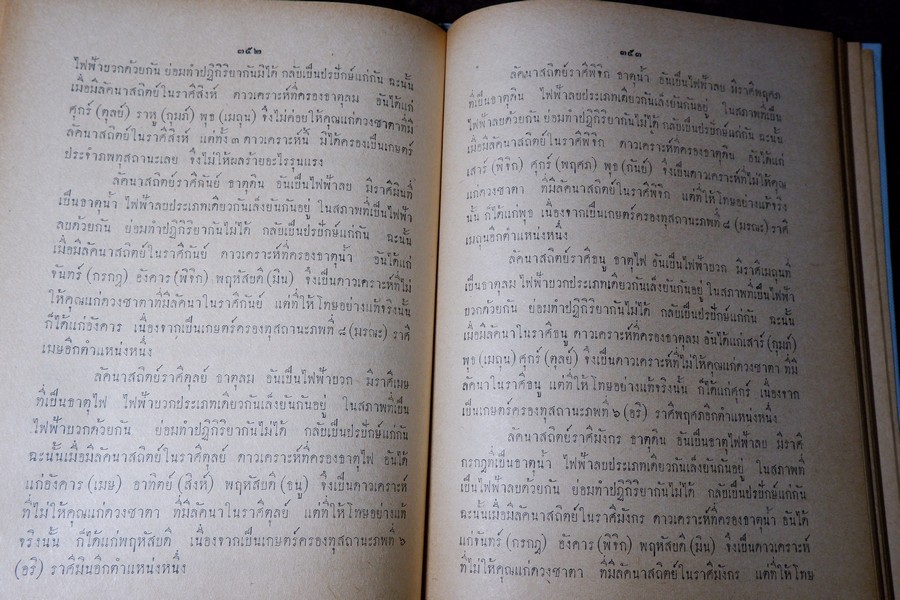 ๓๕๒
ไฟฟ้าบวกด้วยกัน ย่อมทำปฏิกิริยากันมิได้ กลับเป็นปรปักษ์แก่กัน ฉะนั้น
เมื่อมีลัคนาสถิตย์ในราศีสิงห์ ดาวเคราะห์ที่ครองธาตุลม อันได้แก่
ศุกร์ (ตุลย์) ราหู (กุมภ์) พุธ (เมถุน) จึงไม่ค่อยให้คุณแก่ดวงชาตาที่มี
ลัคนาสถิตย์ในราศีสิงห์ แต่ทั้ง ๓ ดาวเคราะห์นี้ มิได้ครองเป็นเกษตร์
ประจำภพทุสถานะเลย จึงไม่ให้ผลร้ายอะไรรุนแรง
ลัคนาสถิตย์ราศีกันย์ ธาตุดิน อันเป็นไฟฟ้าลบ มีราศีมีนที่
เป็นธาตุน้ำ ไฟฟ้าลบประเภทเดียวกันเล็งยันกันอยู่ ในสภาพที่เป็นไฟฟ้า
ลบด้วยกัน ย่อมทำปฏิกิริยากันไม่ได้ กลับเป็นปรปักษ์แก่กัน ฉะนั้น
เมื่อมีลัคนาสถิตย์ในราศีกันย์ ดาวเคราะห์ที่ครองธาตุน้ำ อันได้แก่
จันทร์ (กรกฎ) อังคาร (พิจิก) พฤหัสบดิ (มีน) จึงเป็นดาวเคราะห์ที่ไม่
ให้คุณแก่ดวงชาตาที่มีลัคนาในราศีกันย์ แต่ที่ให้โทษอย่างแท้จริงนั้น
ก็ได้แก่อังคาร เนื่องจากเป็นเกษตร์ครองทุสถานะภพที่ ๘ (มรณะ) ราศี
เมษอีกตำแหน่งหนึ่ง
ลัคนาสถิตย์ราศีตุลย์ ธาตุลม อันเป็นไฟฟ้าบวก มีราศีเมษ
ที่เป็นธาตุไฟ ไฟฟ้าบวกประเภทเดียวกันเล็งยันกันอยู่ ในสภาพที่เป็น
ไฟฟ้าบวกด้วยกัน ย่อมทำปฏิกิริยากันไม่ได้ กลับเป็นปรปักษ์แก่กัน
ฉะนั้นเมื่อมีลัคนาสถิตย์ในราศีตุลย์ ดาวเคราะห์ที่ครองธาตุไฟ อันได้
แก่อังคาร (เมษ) อาทิตย์ (สิงห์) พฤหัสบดี (ธนู) จึงเป็นดาวเคราะห์
ที่ไม่ให้คุณแก่ดวงชาตา ที่มีลัคนาสถิตย์ในราศีตุลย์ แต่ที่ให้โทษอย่างแท้
จริงนั้น ก็ได้แก่พฤหัสบดี เนื่องจากเป็นเกษตร์ครองทุสถานะภพที่ ๖
(อริ) ราศีมีนอีกตำแหน่งหนึ่ง
๓๕๓
ลัคนาสถิตย์ราศีพิจิก ธาตุน้ำ อันเป็นไฟฟ้าลบ มีราศีพฤศภ
ที่เป็นธาตุดิน ไฟฟ้าลบประเภทเดียวกันเล็งยันกันอยู่ ในสภาพที่เป็น
ไฟฟ้าลบด้วยกัน ย่อมทำปฏิกิริยากันไม่ได้ กลับเป็นปรปักษ์แก่กัน ฉะนั้น
เมื่อมีลัคนาสถิตย์ในราศีพิจิก ดาวเคราะห์ที่ครองธาตุดิน อันได้แก่
เสาร์ (พิจิก) ศุกร์ (พฤศภ) พุธ (กันย์) จึงเป็นดาวเคราะห์ที่ไม่ให้คุณ
แก่ดวงชาตา ที่มีลัคนาสถิตย์ในราศีพิจิก แต่ที่ให้โทษอย่างแท้จริง
นั้น ก็ได้แก่พุธ เนื่องจากเป็นเกษตร์ครองทุสถานะภพที่ ๘ (มรณะ) ราศี
เมถุนอีกตำแหน่งหนึ่ง
ลัคนาสถิตย์ราศีธนู ธาตุไฟ อันเป็นไฟฟ้าบวก มีราศีเมถุนที่
เป็นธาตุลม ไฟฟ้าบวกประเภทเดียวกันเล็งยันกันอยู่ ในสภาพที่เป็นไฟฟ้า
บวกด้วยกัน ย่อมทำปฏิกิริยากันไม่ได้ กลับเป็นปรปักษ์แก่กัน ฉะนั้น
เมื่อมีลัคนาในราศีธนู ดาวเคราะห์ที่ครองธาตุลม อันได้แก่เสาร์ (กุมภ์)
พุธ (เมถุน) ศุกร์ (ตุลย์) จึงเป็นดาวเคราะห์ที่ไม่ให้คุณแก่ดวงชาตา ที่มี
ลัคนาในราศีธนู แต่ที่ให้โทษอย่างแท้จริงนั้น ก็ได้แก่ศุกร์ เนื่องจาก
เป็นเกษตร์ครองทุสถานะภพที่ ๖ (อริ) ราศีพฤศภอีกตำแหน่งหนึ่ง
ลัคนาสถิตย์ราศีมังกร ธาตุดิน อันเป็นธาตุไฟฟ้าลบ มีราศี
กรกฎที่เป็นธาตุน้ำ ไฟฟ้าลบประเภทเดียวกันเล็งยันกันอยู่ ในสภาพที่
เป็นไฟฟ้าลบด้วยกัน ย่อมทำปฏิกิริยากันไม่ได้ กลับเป็นปรปักษ์แก่กัน
ฉะนั้นเมื่อมีลัคนาสถิตย์ในราศีมังกร ดาวเคราะห์ที่ครองธาตุน้ำ อันได้
แก่จันทร์ (กรกฎ) อังคาร (พิจิก) พฤหัสบดี (มีน) จึงเป็นดาวเคราะห์
ที่ไม่ให้คุณแก่ดวงชาตา ที่มีลัคนาสถิตย์ในราศีมังกร แต่ที่ให้โทษ